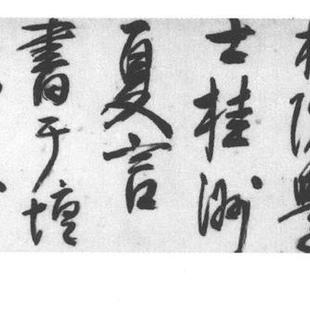 林院學
士桂洲
夏言
書于壇